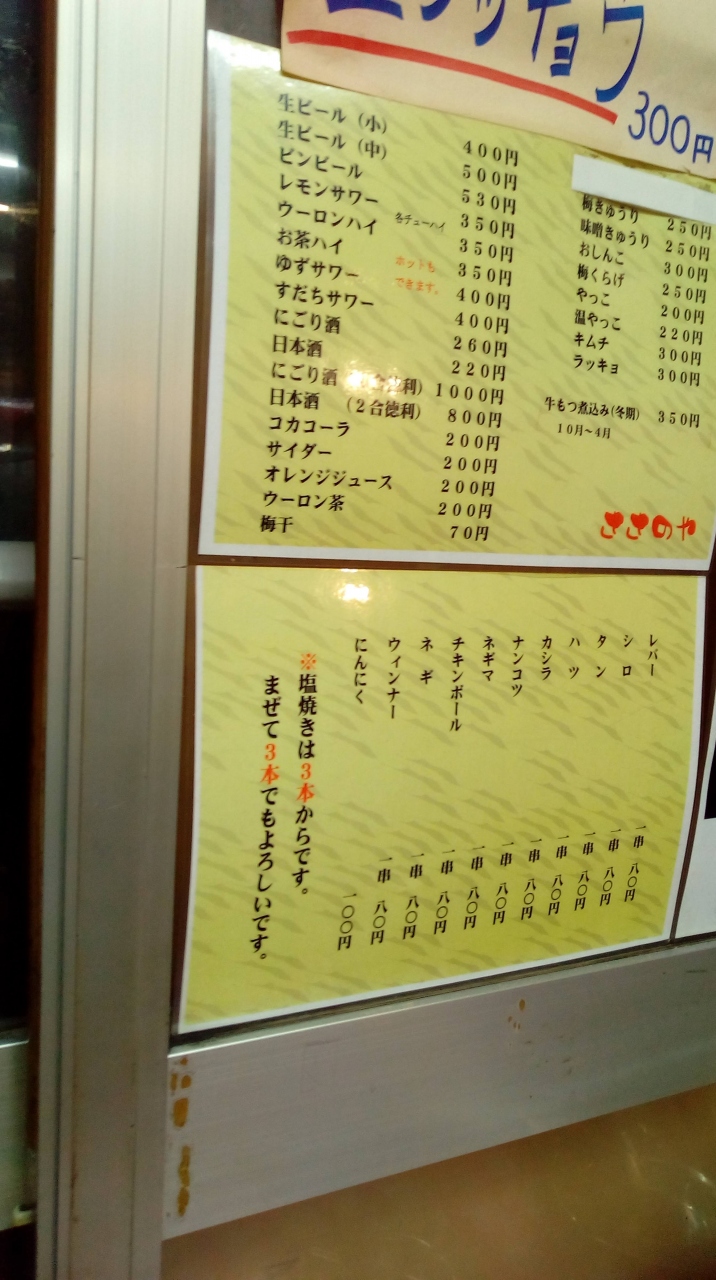 ラッキョウ
300円
生ビール（小） 400円
生ビール（中） 500円
ビンビール 530円
レモンサワー 各チューハイ 350円
ウーロンハイ 350円
お茶ハイ ホットも できます。 350円
ゆずサワー 400円
すだちサワー 400円
にごり酒 260円
日本酒 220円
にごり酒 合徳利） 1000円
日本酒 （２合徳利） 800円
コカコーラ 200円
サイダー 200円
オレンジジュース 200円
ウーロン茶 200円
梅干 70円
梅きゅうり 250円
味噌きゅうり 250円
おしんこ 300円
梅くらげ 250円
やっこ 200円
温やっこ 220円
キムチ 300円
ラッキョ 300円
牛もつ煮込み（冬期） 350円
10月～4月
ささのや
レバー 一串 八〇円
シロ 一串 八〇円
タン 一串 八〇円
ハツ 一串 八〇円
カシラ 一串 八〇円
ナンコツ 一串 八〇円
ネギマ 一串 八〇円
チキンボール 一串 八〇円
ネギ 一串 八〇円
ウィンナー 一串 八〇円
にんにく 一〇〇円
※塩焼きは３本からです。
まぜて３本でもよろしいです。